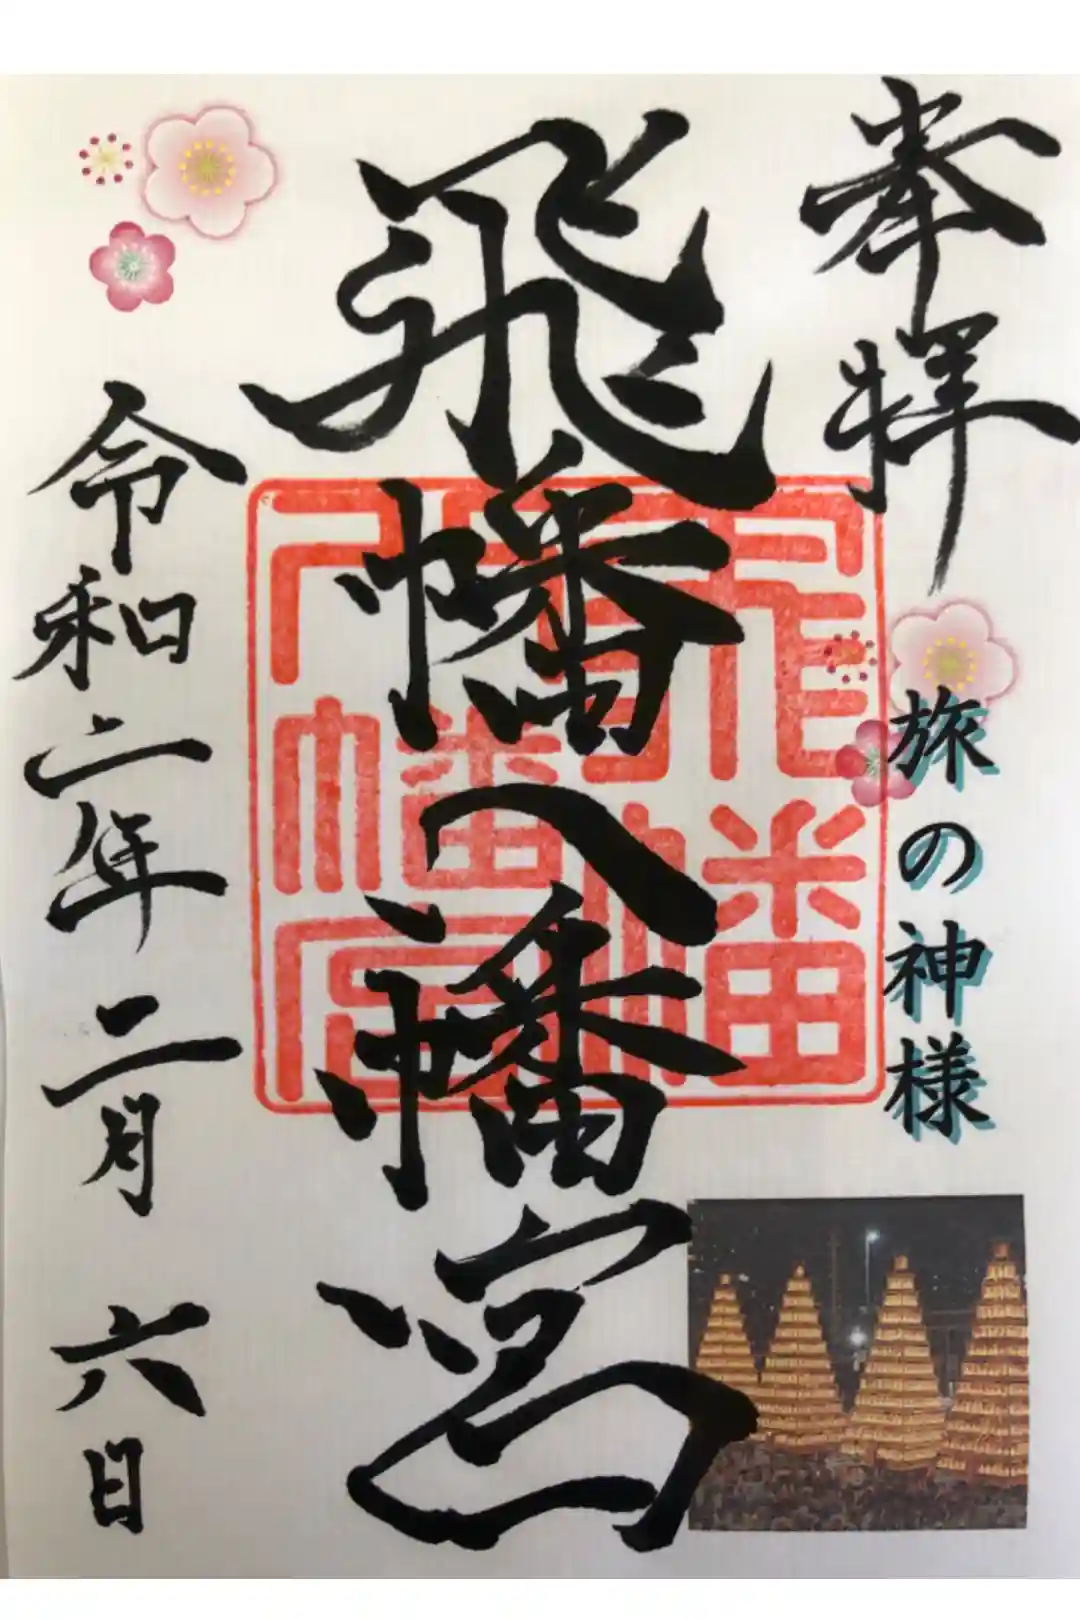 奉拝
旅の神様
飛幡八幡宮
飛幡
八幡宮
令和二年二月六日